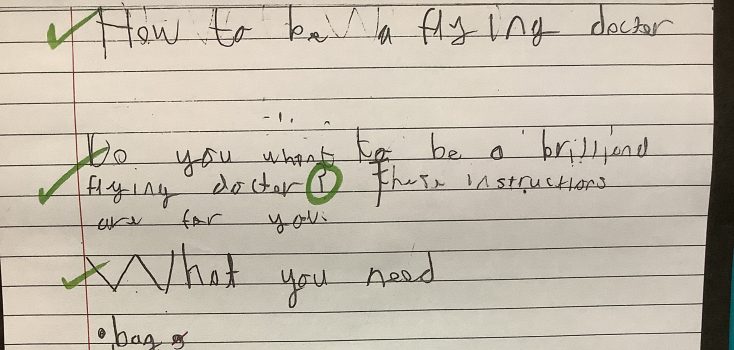 How to be a flying doctor
Do you whant to be a brilliond
flying doctor? these instructions
are for you.
What you need
• bag